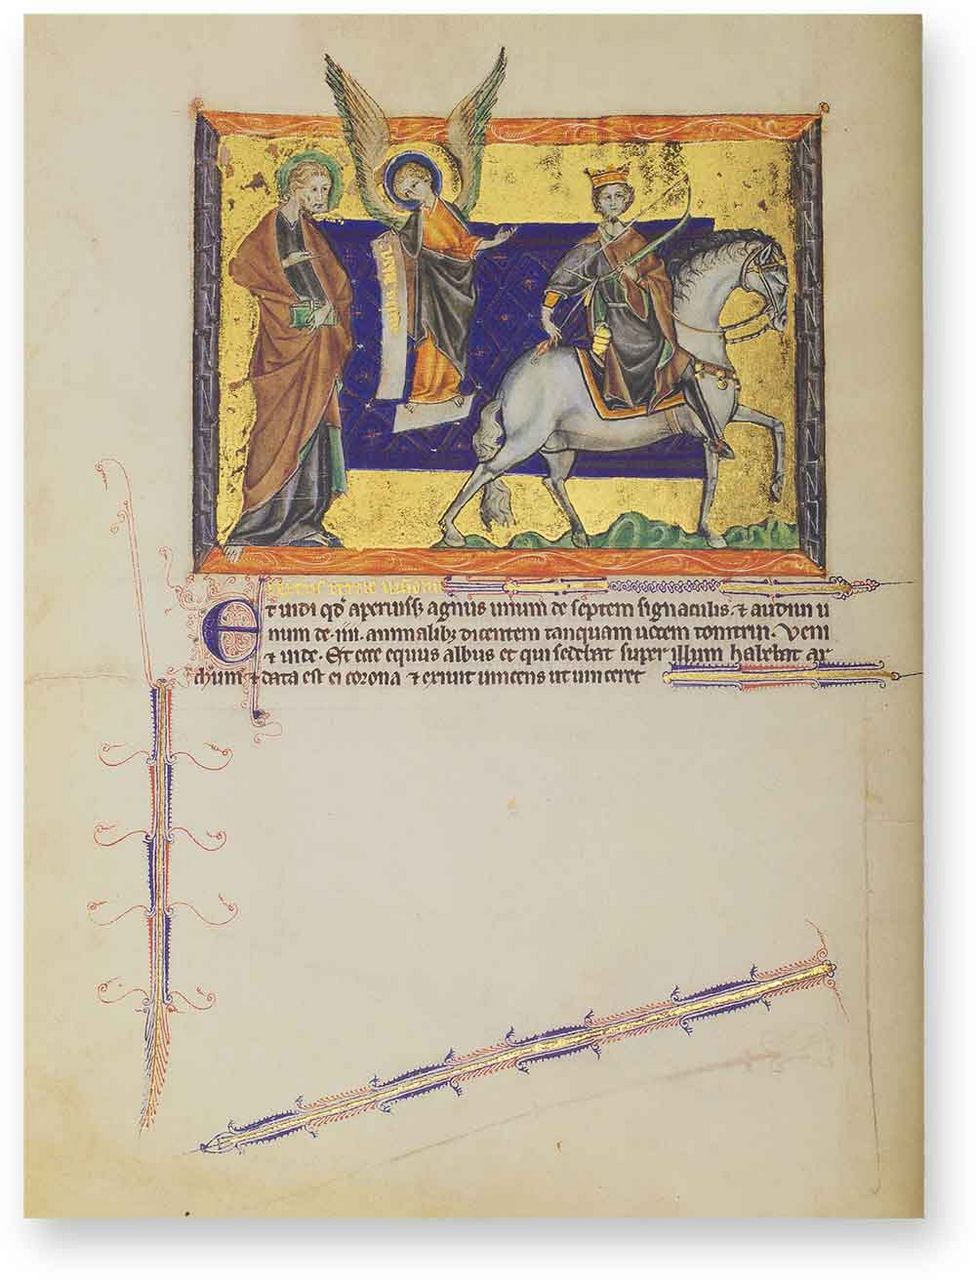 Et uidi qđ aperuiss& agnus unum de septem signaculis. ⁊ audiui u
num de .iiii. animalibꝫ dicentem tanquam uocem tonitrui. Veni
⁊ uide. Et ecce equus albus et qui sedebat super illum habebat ar
chum ⁊ data est ei corona ⁊ exiuit uincens ut uinceret